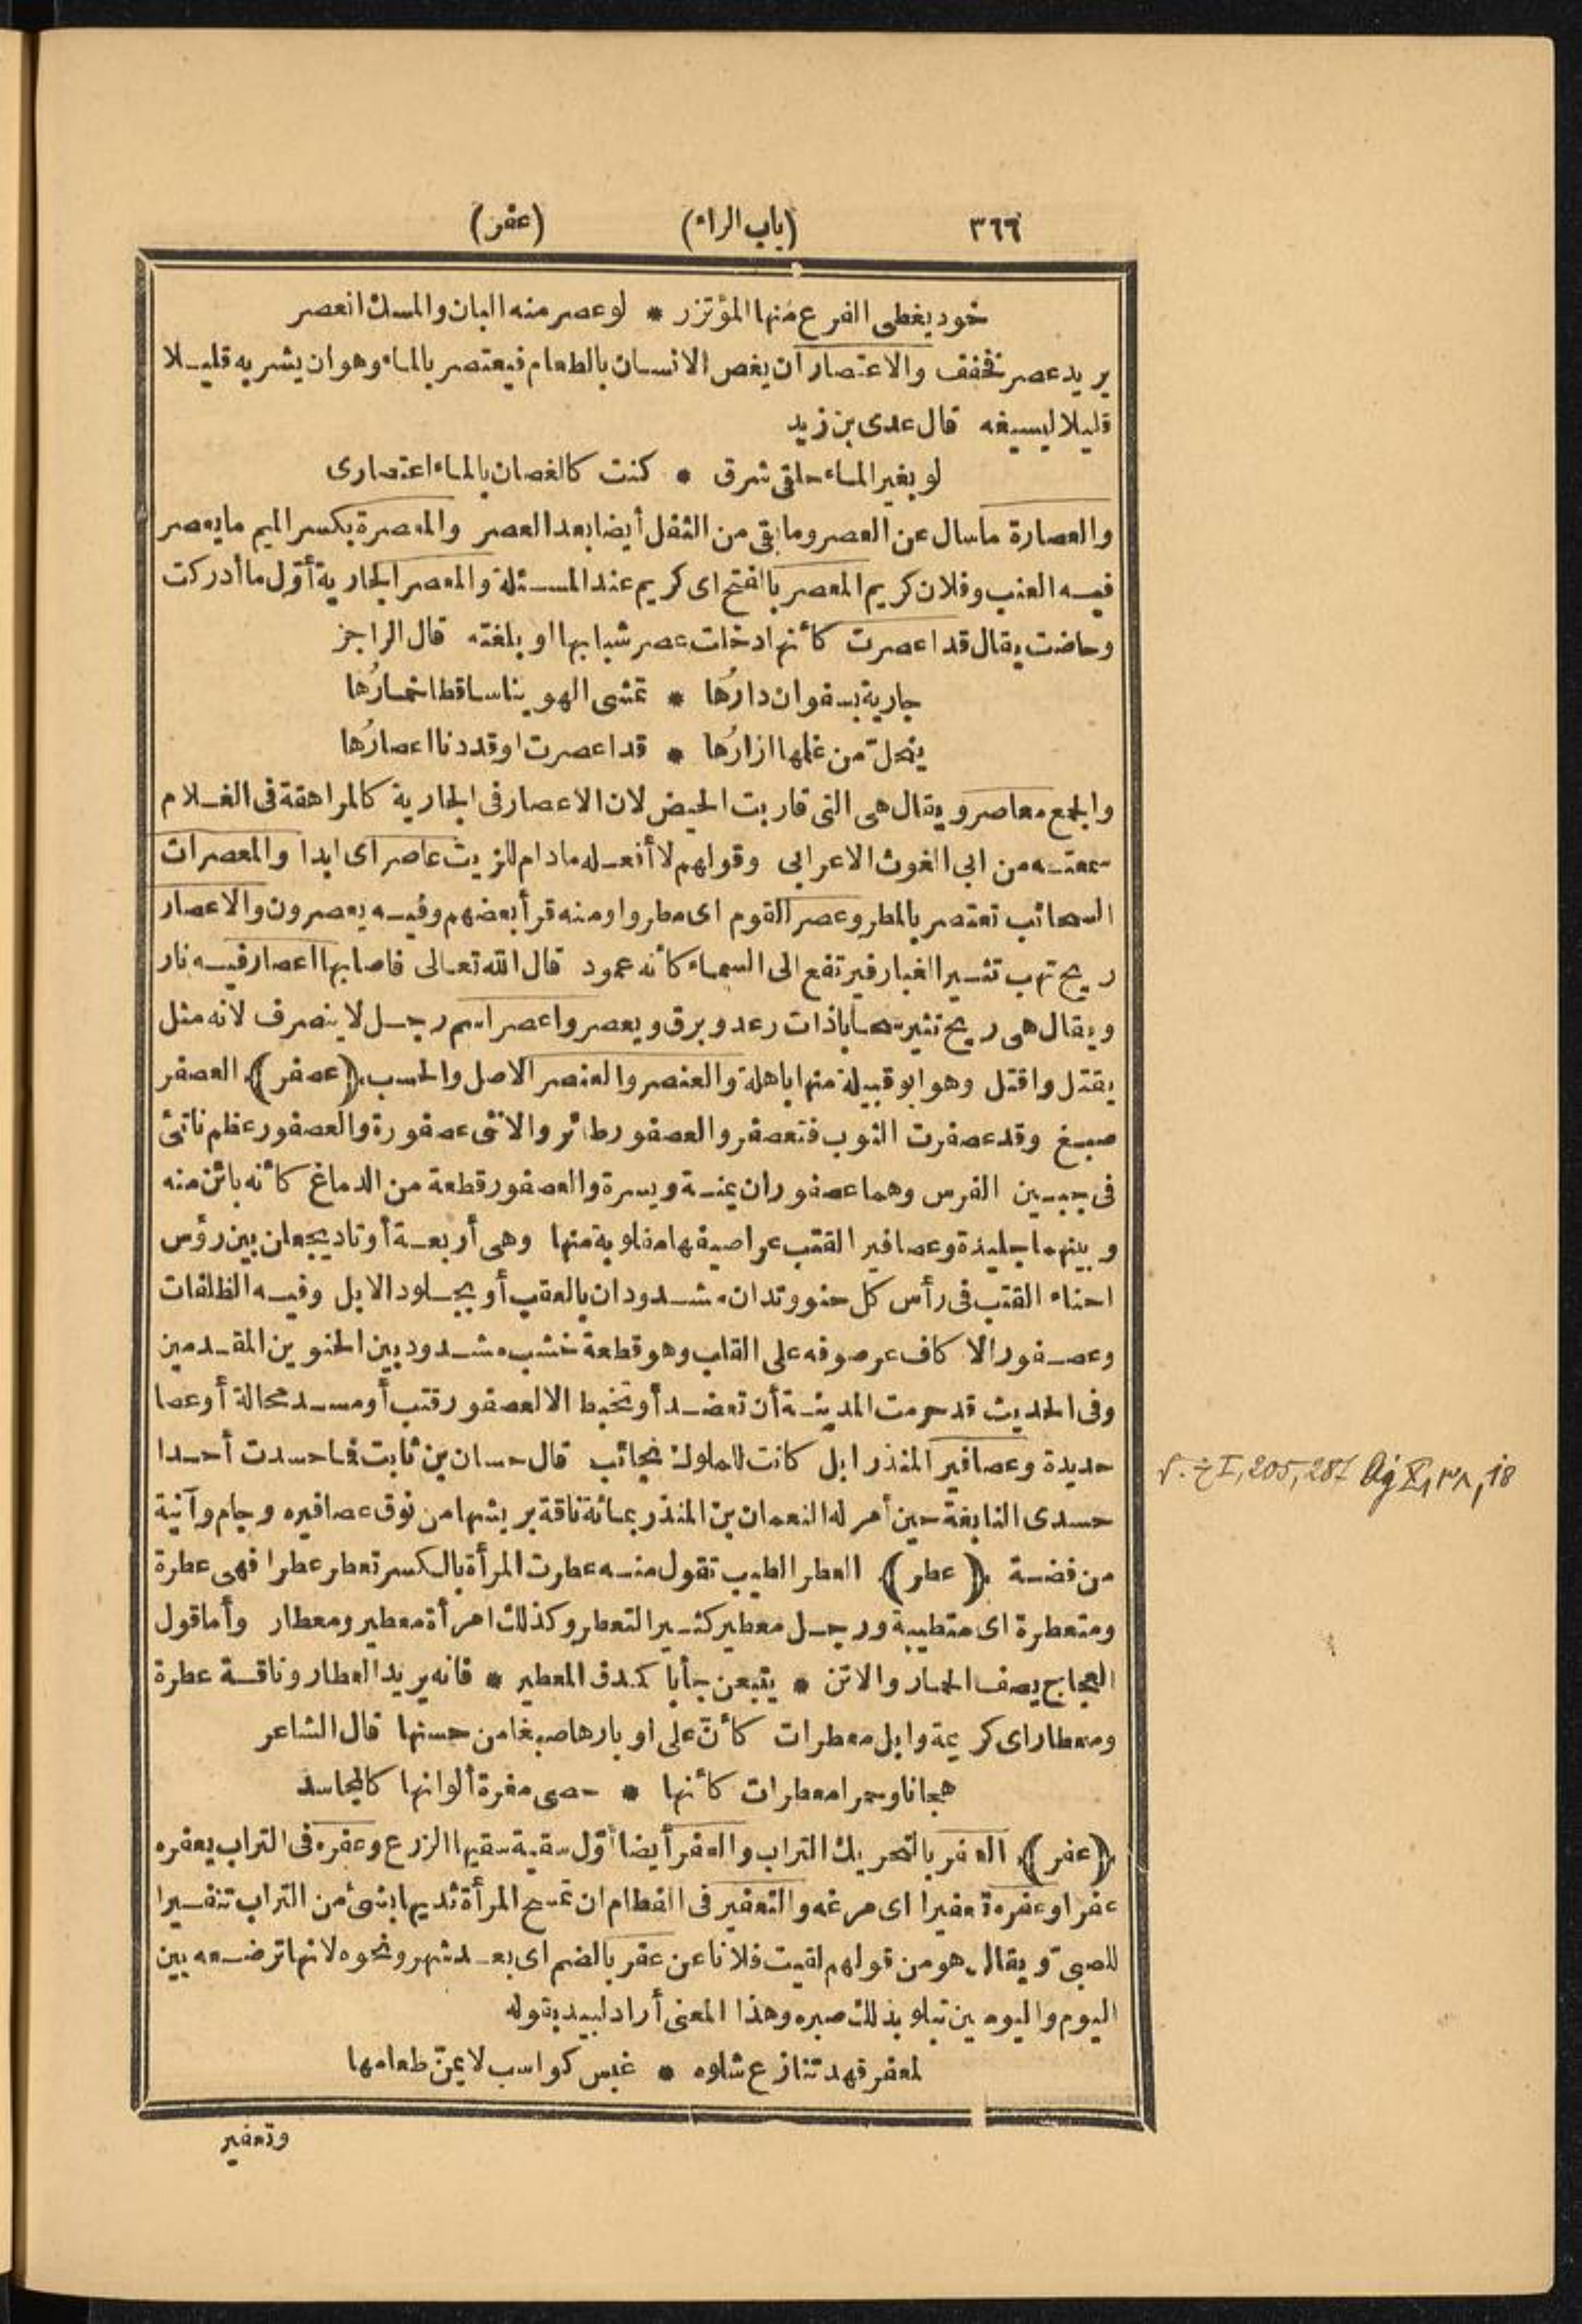 ٣٦٦ (باب الراء) (عفر)
خود يغطى الفرع منها المؤتزر * لو عصر منه البان والمسك انعصر
يريد عصر فخفف والاعتصار أن يغص الانسان بالطعام فيعتصر بالماء وهو ان يشربه قليلا
قليلا ليسيغه قال عدى بن زيد
لو بغير الماء حلقى شرق * كنت كالغصان بالماء اعتصارى
والعصارة ماسال عن العصر وما بقى من الثفل أيضا بعد العصر والمعصرة بكسر الميم ما يعصر
فيه العنب وفلان كريم المعصر بالفتح اى كريم عند المسئلة والمعصر الجارية أوّل ما أدركت
وحاضت يقال قد اعصرت كأنها دخلت عصر شبابها او بلغته قال الراجز
جارية بسفوان دارُها * تمشى الهوينا ساقطا خمارُها
ينحلّ من غلمها ازارُها * قد اعصرت او قد دنا اعصارُها
والجمع معاصر ويقال هى التى قاربت الحيض لان الاعصار فى الجارية كالمراهقة فى الغلام
سمعته من ابى الغوث الاعرابى وقولهم لا أفعله مادام للزيت عاصر اى ابدا والمعصرات
السحائب تعتصر بالمطر وعصر القوم اى مطروا ومنه قرأ بعضهم وفيه يعصرون والاعصار
ريح تهب تثير الغبار فيرتفع الى السماء كأنه عمود قال الله تعالى فاصابها اعصار فيه نار
ويقال هى ريح تثير سحابا ذات رعد وبرق ويعصر واعصر اسم رجل لا ينصرف لانه مثل
يقتل واقتل وهو ابو قبيلة منها باهلة والعنصر والعنصر الاصل والحسب (عصفر) العصفر
صبغ وقد عصفرت الثوب فتعصفر والعصفور طائر والانثى عصفورة والعصفور عظم ناتئ
فى جبين الفرس وهما عصفوران يمنة ويسرة والعصفور قطعة من الدماغ كأنه بائن منه
وبينهما جليدة وعصافير القتب عراصيفها مقلوبة منها وهى أربعة أوتاد يجعلن بين رؤس
احناء القتب فى رأس كل حنو وتدان مشدودان بالعقب أو بجلود الابل وفيه الظلفات
وعصفور الاكاف عرصوفه على القلب وهو قطعة خشب مشدود بين الحنوين المقدمين
وفى الحديث قد حرمت المدينة أن تعضد أو تخبط الا لعصفور قتب أو مسد محالة أو عصا
حديدة وعصافير المنذر ابل كانت للملوك نجائب قال حسان بن ثابت فما حسدت أحدا
حسدى النابغة حين أمر له النعمان بن المنذر بمائة ناقة بريشها من نوق عصافيره وجام وآنية
من فضة (عطر) العطر الطيب تقول منه عطرت المرأة بالكسر تعطر عطرا فهى عطرة
ومتعطرة اى متطيبة ورجل معطير كثير التعطر وكذلك امرأة معطير ومعطار وأما قول
العجاج يصف الحمار والاتن * يتبعن جأبا كمدق المعطير * فانه يريد العطار وناقة عطرة
ومعطار اى كريمة وابل معطرات كأنّ على اوبارها صبغا من حسنها قال الشاعر
هجانا وحمرا معطرات كأنها * حصى مغرة ألوانها كالمجاسد
(عفر) العفر بالتحريك التراب والعفر أيضا أوّل سقية سقيها الزرع وعفره فى التراب يعفره
عفرا وعفره تعفيرا اى مرغه والتعفير فى الفطام ان تمسح المرأة ثديها بشئ من التراب تنفيرا
للصبىّ ويقال هو من قولهم لقيت فلانا عن عفر بالضم اى بعد شهر ونحوه لانها ترضعه بين
اليوم واليومين تبلو بذلك صبره وهذا المعنى أراد لبيد بقوله
لمعفر قهد تنازع شلوه * غبس كواسب لا يمنّ طعامها
وتعفير
I, 205, 287 Aġ X, ٣٨, 18